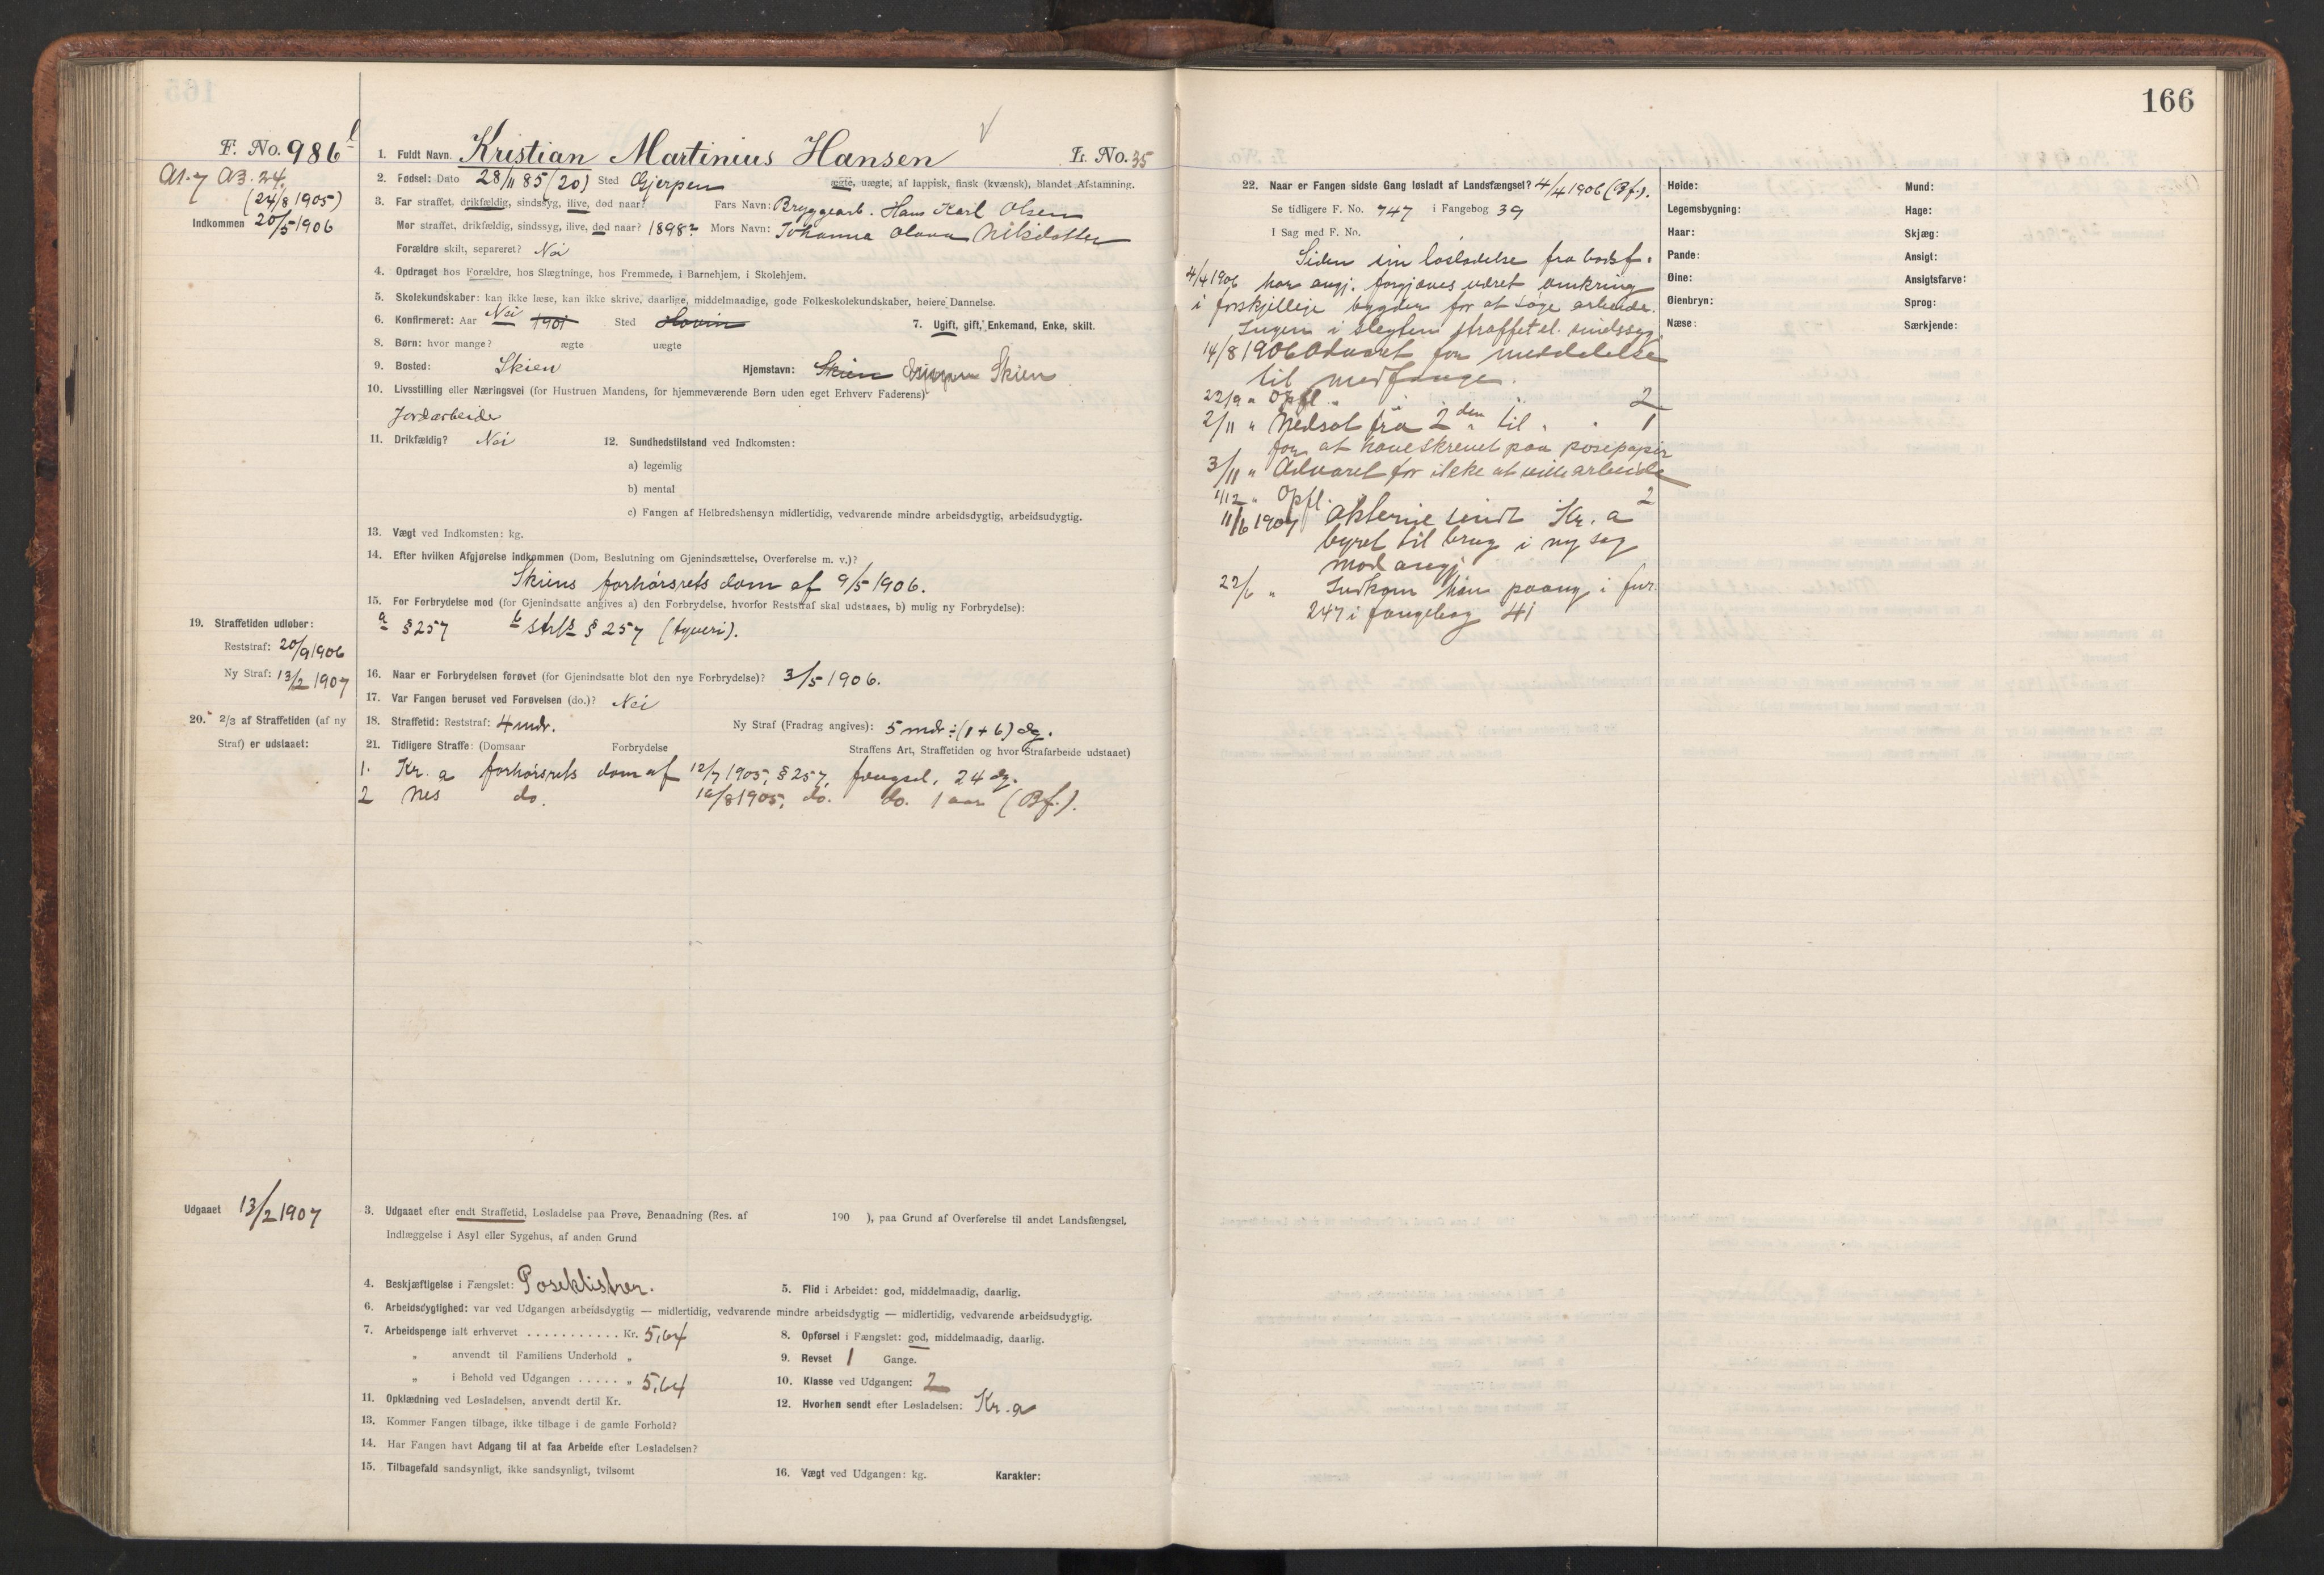 166
F. No. 986
A1.7 A3.24.
(24/8 1905)
Indkommen 20/5 1906
1. Fuldt Navn Kristian Martinius Hansen L. No. 35
2. Fødsel: Dato 28/11 85 (20) Sted Gjerpen ægte, uægte, af lappisk, finsk (kvænsk), blandet Afstamning.
3. Far straffet, drikfældig, sindssyg, ilive, død naar? Fars Navn: Bryggearb. Hans Karl Olsen
Mor straffet, drikfældig, sindssyg, ilive, død naar? 1898? Mors Navn: Johanna Olava Nilsdatter
Forældre skilt, separeret? Nei
4. Opdraget hos Forældre, hos Slægtninge, hos Fremmede, i Barnehjem, i Skolehjem.
5. Skolekundskaber: kan ikke læse, kan ikke skrive, daarlige, middelmaadige, gode Folkeskolekundskaber, høiere Dannelse.
6. Konfirmeret: Aar Nei 1901 Sted Hovin 7. Ugift, gift, Enkemand, Enke, skilt.
8. Børn: hvor mange? ægte uægte
9. Bosted: Skien Hjemstavn: Skien Gjerpen Skien
10. Livsstilling eller Næringsvei (for Hustruen Mandens, for hjemmeværende Børn uden eget Erhverv Faderens)
Jordarbeide
11. Drikfældig? Nei 12. Sundhedstilstand ved Indkomsten:
a) legemlig
b) mental
c) Fangen af Helbredshensyn midlertidig, vedvarende mindre arbeidsdygtig, arbeidsudygtig.
13. Vægt ved Indkomsten: kg.
14. Efter hvilken Afgjørelse indkommen (Dom, Beslutning om Gjenindsættelse, Overførelse m. v.)?
Skiens forhørsrets dom af 9/5 1906.
15. For Forbrydelse mod (for Gjenindsatte angives a) den Forbrydelse, hvorfor Reststraf skal udstaaes, b) mulig ny Forbrydelse):
a § 257 b strfs § 257 (tyveri).
19. Straffetiden udløber:
Reststraf: 20/9 1906
Ny Straf: 13/2 1907
16. Naar er Forbrydelsen forøvet (for Gjenindsatte blot den nye Forbrydelse)? 3/5 1906.
17. Var Fangen beruset ved Forøvelsen (do.)? Nei
20. 2/3 af Straffetiden (af ny
Straf) er udstaaet:
18. Straffetid: Reststraf: 4 mdr. Ny Straf (Fradrag angives): 5 mdr ÷ (1 + 6) dg.
21. Tidligere Straffe: (Domsaar Forbrydelse Straffens Art, Straffetiden og hvor Strafarbeide udstaaet)
1. Kr. a forhørsrets dom af 12/7 1905, § 257, fængsel, 24 dg.
2 Nes do. 19/8 1905, do. do. 1 aar (Bf.).
Udgaaet 13/2 1907
3. Udgaaet efter endt Straffetid, Løsladelse paa Prøve, Benaadning (Res. af 190 ), paa Grund af Overførelse til andet Landsfængsel,
Indlæggelse i Asyl eller Sygehus, af anden Grund
4. Beskjæftigelse i Fængslet: Poseklistrer. 5. Flid i Arbeidet: god, middelmaadig, daarlig.
6. Arbeidsdygtighed: var ved Udgangen arbeidsdygtig — midlertidig, vedvarende mindre arbeidsdygtig — midlertidig, vedvarende arbeidsudygtig.
7. Arbeidspenge ialt erhvervet . . . . . . . . . . . Kr. 5,64 8. Opførsel i Fængslet: god, middelmaadig, daarlig.
„ anvendt til Familiens Underhold „ 9. Revset 1 Gange.
„ i Behold ved Udgangen . . . . . „ 5,64 10. Klasse ved Udgangen: 2
11. Opklædning ved Løsladelsen, anvendt dertil Kr. 12. Hvorhen sendt efter Løsladelsen: Kr. a
13. Kommer Fangen tilbage, ikke tilbage i de gamle Forhold?
14. Har Fangen havt Adgang til at faa Arbeide efter Løsladelsen?
15. Tilbagefald sandsynligt, ikke sandsynligt, tvilsomt 16. Vægt ved Udgangen: kg. Karakter:
22. Naar er Fangen sidste Gang løsladt af Landsfængsel? 4/4 1906 (Bf.).
Se tidligere F. No. 747 i Fangebog 39
I Sag med F. No.
Siden sin løsladelse fra bodsf.
4/4 1906 har angj. forgjæves været omkring
i forskjellige bygder for at søge arbeide.
Ingen i slegten straffet el. sindssyg.
14/8 1906 Advaret for meddelelse
til medfange.
22/9 " Opfl. " 2
2/11 " Nedsat fra 2den til " 1
for at have skrevet paa posepapir
3/11 " Advaret for ikke at ville arbeide
1/12 " Opfl. 2
11/6 1907 Akterne sendt Kr. a
byret til brug i ny sag
mod angj.
22/6 " Indkom han paany i fnr.
247 i fangebog 41
Høide: Mund:
Legemsbygning: Hage:
Haar: Skjæg:
Pande: Ansigt:
Øine: Ansigtsfarve:
Øienbryn: Sprog:
Næse: Særkjende: